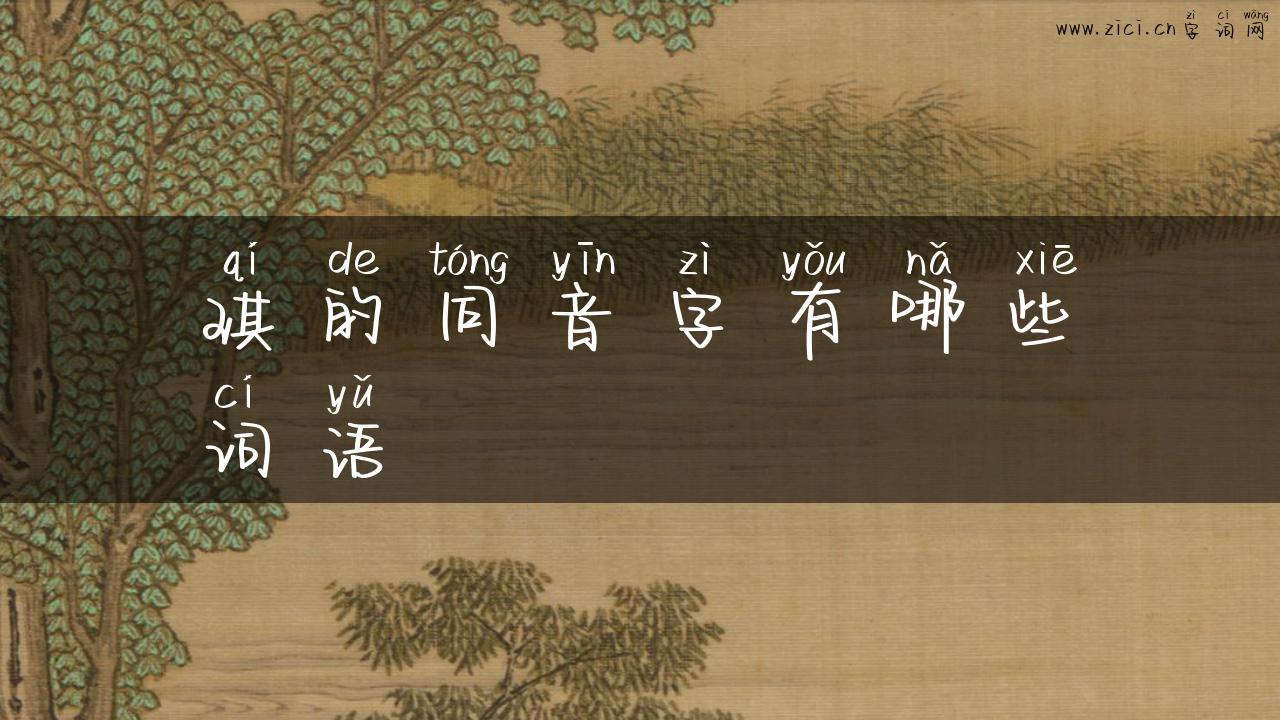 zì cí wǎng
www.zici.cn字词网
qí de tóng yīn zì yǒu nǎ xiē
琪的同音字有哪些
cí yǔ
词语